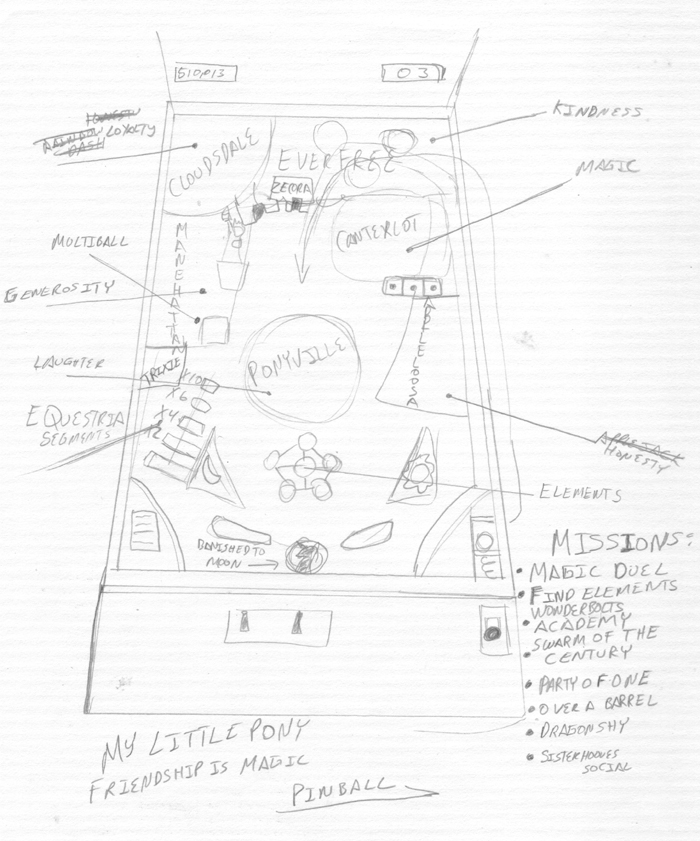 510913
03
HONESTY
RAINBOW LOYALTY
DASH
CLOUDSDALE
EVERFREE
KINDNESS
ZECORA
MAGIC
CANTERLOT
MANEHATTAN
MULTIBALL
GENEROSITY
APPLELOOSA
PONYVILLE
LAUGHTER
TRIXIE
X10
X6
X4
X2
EQUESTRIA
SEGMENTS
APPLEJACK
HONESTY
ELEMENTS
BANISHED TO
MOON
MISSIONS:
• MAGIC DUEL
• FIND ELEMENTS
WONDERBOLTS
• ACADEMY
SWARM OF THE
• CENTURY
• PARTY OF ONE
• OVER A BARREL
• DRAGONSHY
• SISTERHOOVES
SOCIAL
MY LITTLE PONY
FRIENDSHIP IS MAGIC
PINBALL